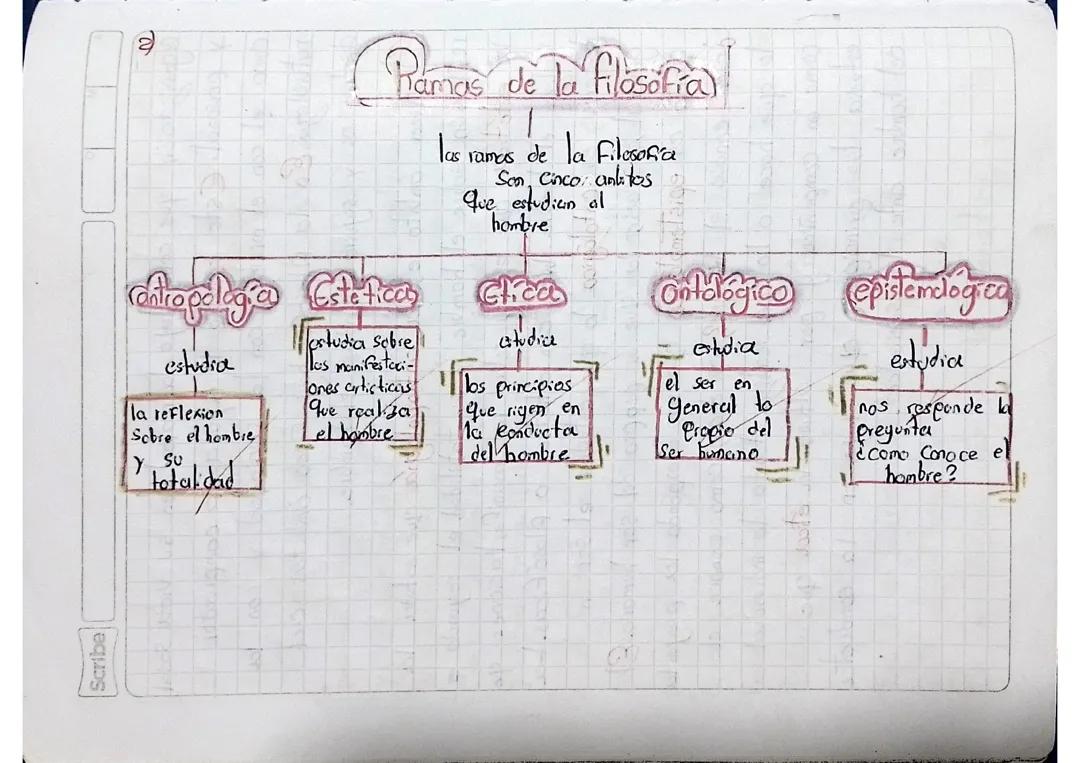 2)
Ramas de la filosofía
las ramas de la filosofía
Son cinco ambitos
que estudian al
hombre
antropología
estudia
la reflexion
sobre el hombre
y su
totalidad
Estética
estudia sobre
las manifestaci-
ones artisticas
que realiza
el hombre
Etica
estudia
los principios
que rigen en
la conducta
del hombre
Ontológico
estudia
el ser en
general lo
propio del
ser humano
epistemológica
estudia
nos responde la
pregunta
¿como conoce el
hombre?
Scribe